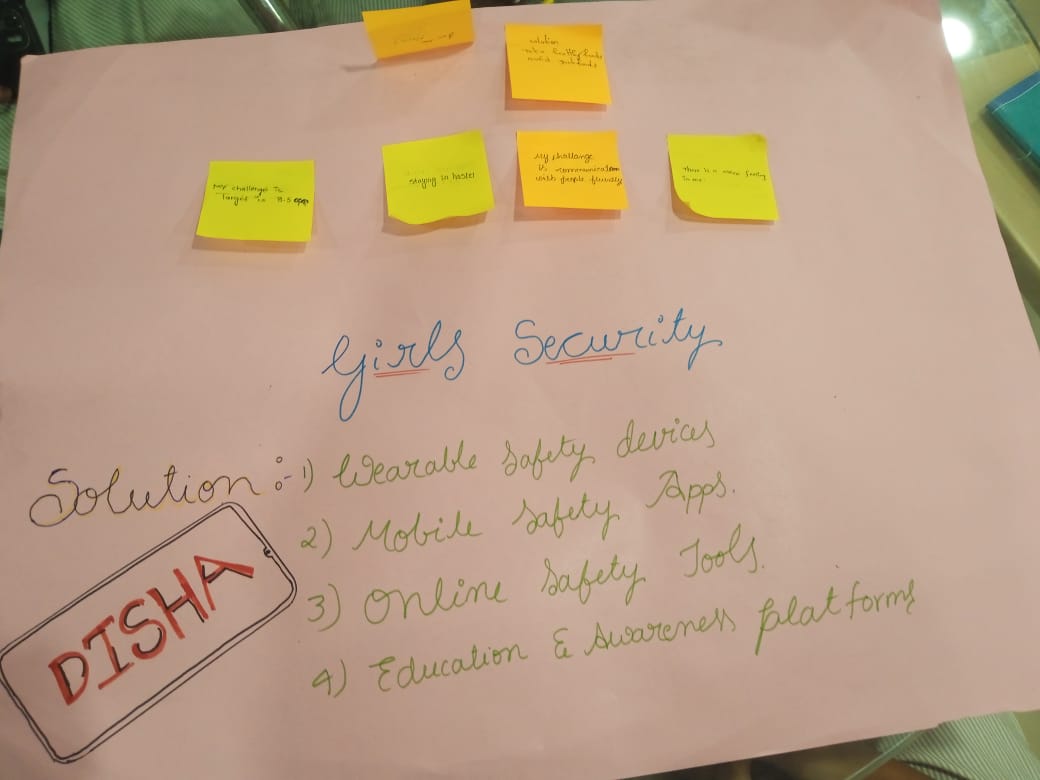 solution
avoid
My challenges To
Target is 8.5
staying in hostel
My challange
is communication
with people fluently
There is a
to me.
Girls Security
Solution :-
1) Wearable Safety devices
2) Mobile Safety Apps.
3) Online Safety Tools.
4) Education & Awareness platforms
DISHA